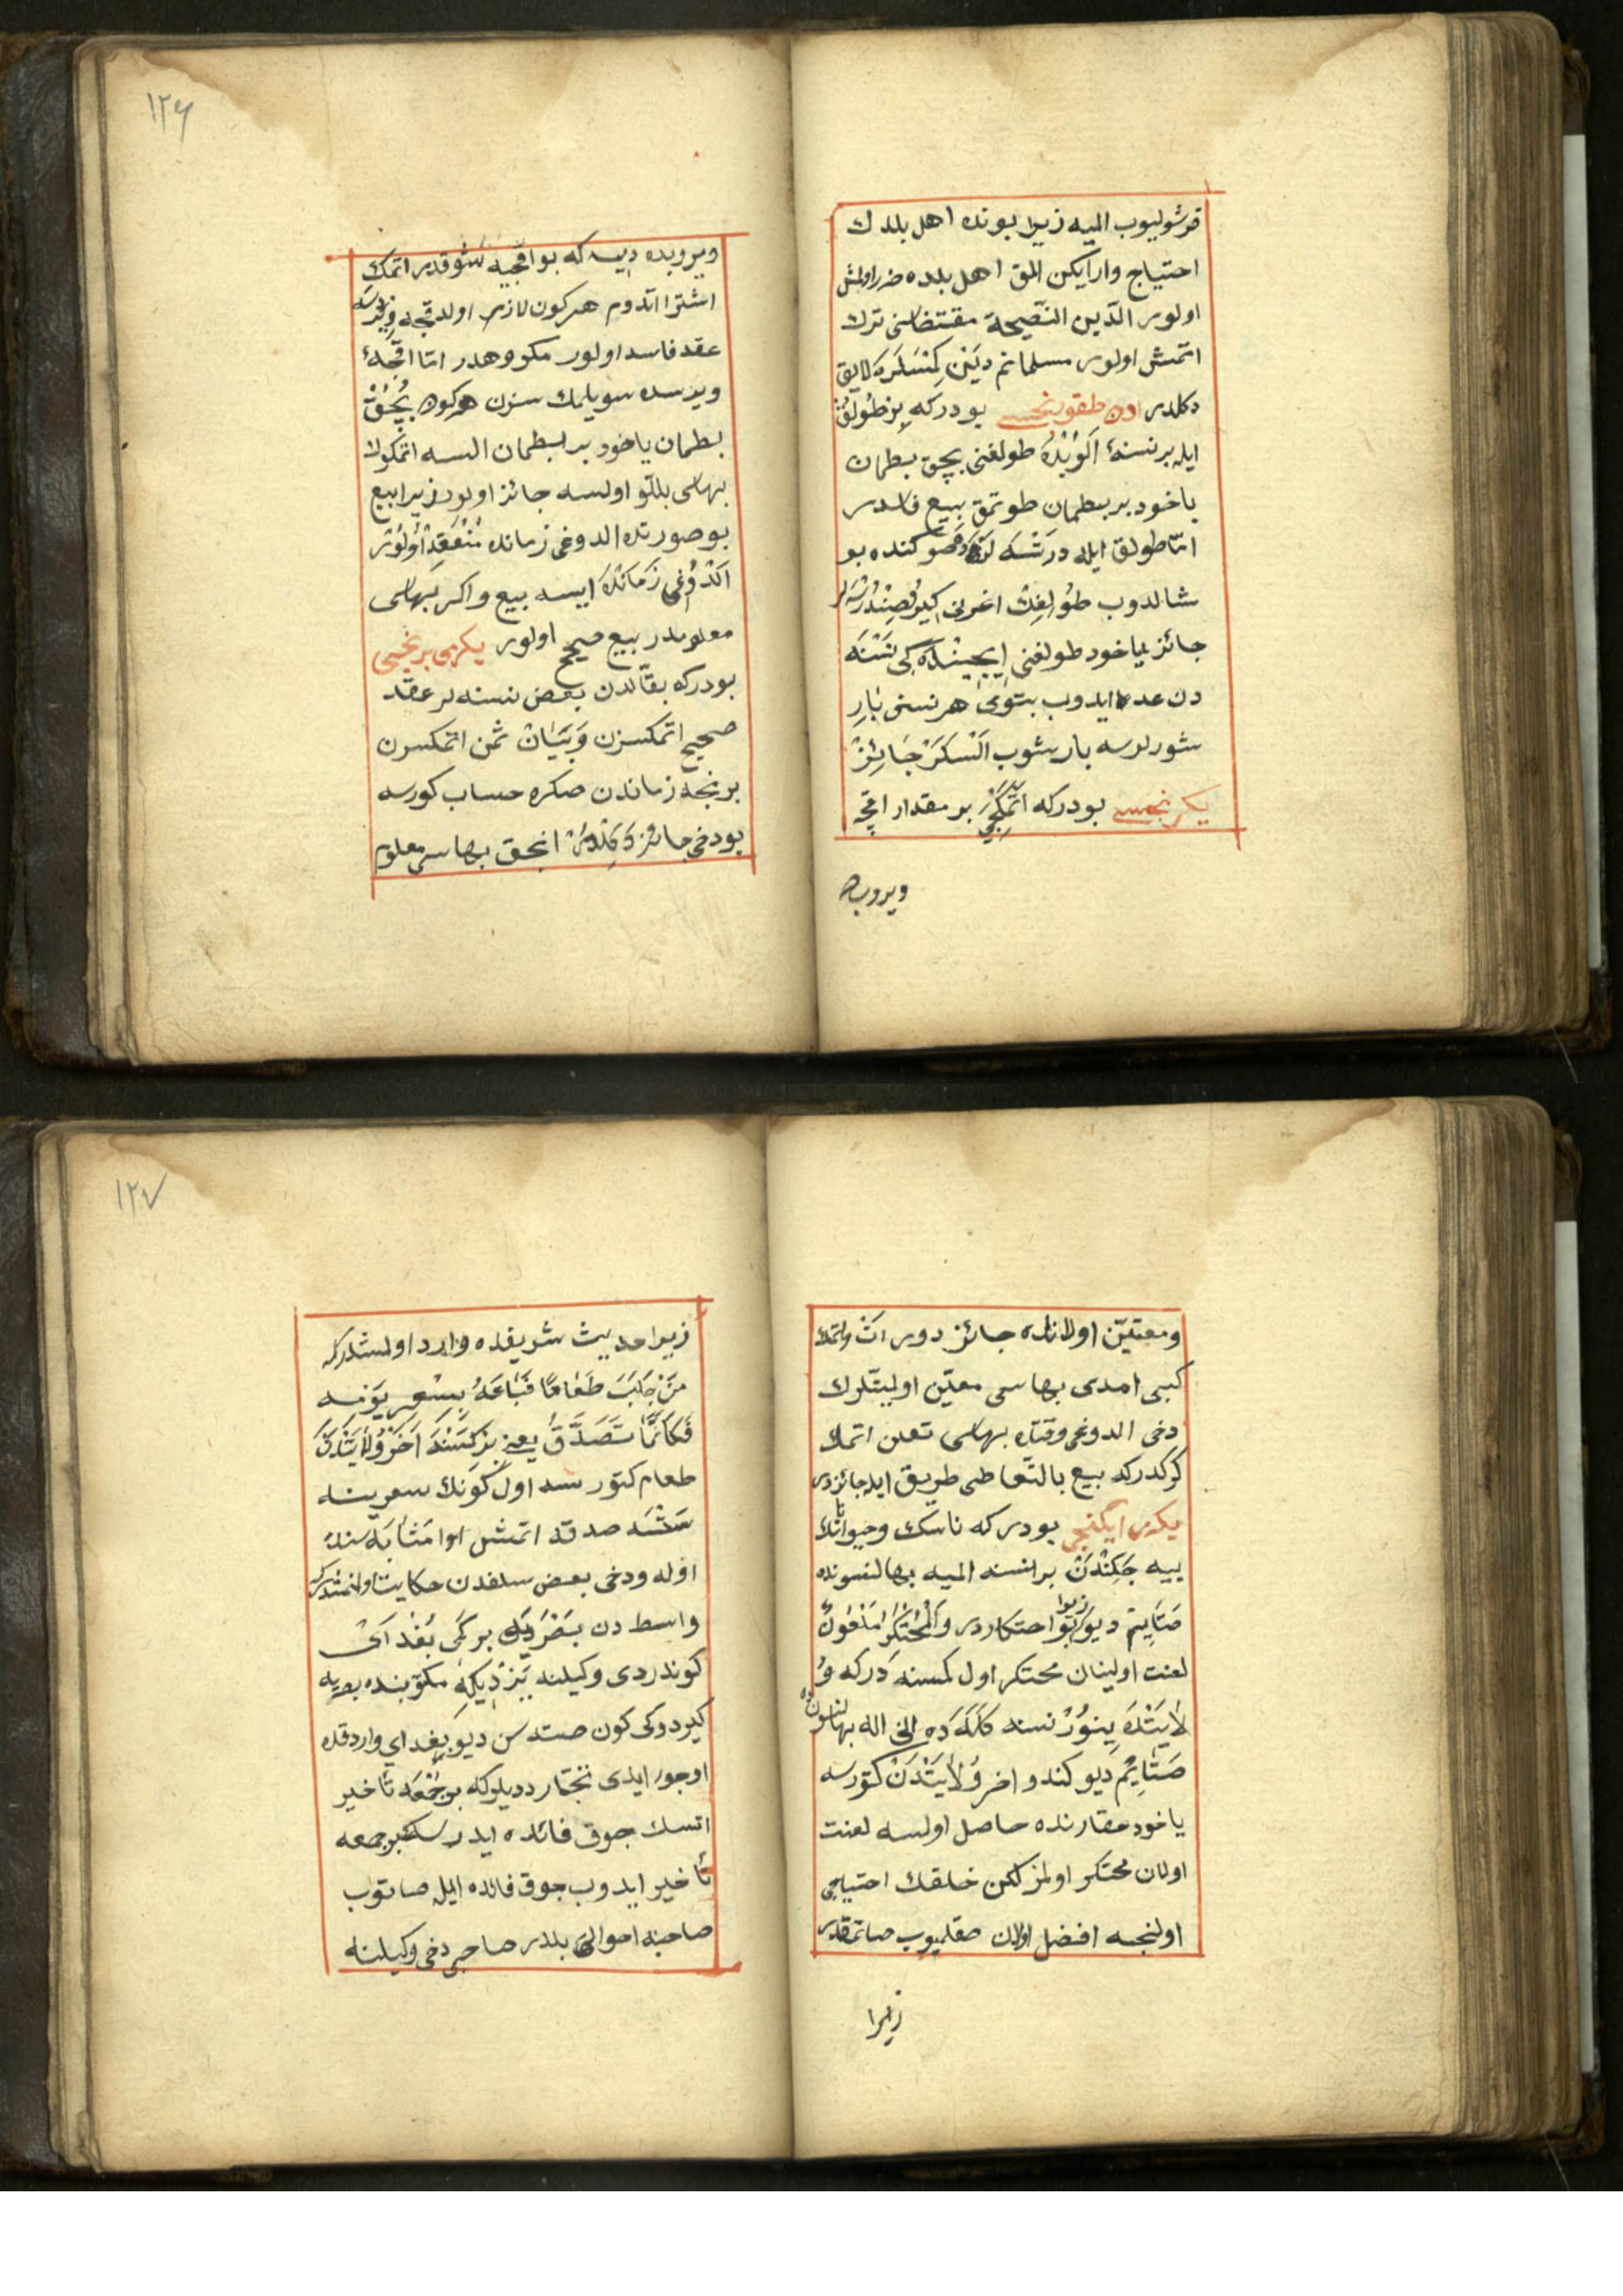 قرشولیوب المیه زیرا بونده اهل بلدك
احتیاج وار ایکن المق اهل بلده ضرر اولمش
اولور الدّین النّصیحة مقتضاسنی ترك
اتمش اولور مسلمانم دیَنْ کِمْسَلَرَه لایق
دکلدر اون طقوزنجیسی بودرکه بِرْ طُولُقْ
ایله برنسنهٔ الوُبْدَه طولغنی بچق بطمان
یاخود بر بطمان طوتمق بیع فاسددر
امّا طولق ایله دَرَتْسَه لَرْ صوکنده بو
شالدوب طُولُغِڭ اغرلغی
جائز یاخود طولغنی ایچینْدَه کی نَسْنَه
دن عد ایدوب بتوی هر نسنی بَازِرْ
شورلرسه بازرشوب اَلْسَلَرْ جَائِزْ
یکرمنجیسی بودرکه اتْمَکْجِیَه بر مقدار اقچه
ویروبده
۱۲۶
ویروبده دیسه که بو اقچیه شوقدر اتمك
اشترا اتدوم هرکون لازم اولدقجه ویرسه
عقد فاسد اولور مکروهدر امّا اقچهٔ
ویرسده سویلمك سزن هرکون بُچُقْ
بطمان یاخود بر بطمان السه اتمکوڭ
بهاسی بللو اولسه جائز اولور زیرا بیع
بوصورتده الدوغی زمانده مُنْعَقِدْ اُولُوْر
اَلْدُوْغِی زَمَانْدَه ایسه بیع واکر بهاسی
معلومدر بیع صحیح اولور یکرمی برنجیسی
بودرکه بقّالدن بعض نسنه لر عقد
صحیح اتمکسزن وَبَیَانْ ثمن اتمکسزن
برنجه زماندن صکره حساب کورسه
بودخی جائز دَکِلْدُرْ انجق بهاسی معلوم
ومعیّن اولانلده جائز دور ات واتمك
کبی امدی بهاسی معیّن اولیتلرك
دخی الدوغی وقتده بهاسی تعین اتمك
کرکدرکه بیع بالتعاطی طریق ایله جائزدر
یکرمی ایکنجی بودرکه ناسك وحیواناتك
ییه جَکِنْدَنْ بر نسنه المیه بهالنسونده
صَتَایِیْم دیو زیرا بو احتکاردر وَالْمُحْتَکِرُ مَلْعُونٌ
لعنت اولینان محتکر اول کمسنه دَرکه وُ
لَایَتْدَه یِنوُرْ نسنه کَلَکَدَه انی اله بهالنسونده
صَتَایِیُم دیو کندو اخر وُلَایَتْدَنْ کتورسه
یاخود عقارنده حاصل اولسه لعنت
اولان محتکر اولمز لکن خلقك احتیاجی
اولنجه افضل اولان صقلمیوب صاتمقدر
زیرا
۱۲۷
زیرا حدیث شریفده وارد اولمشدرکه
مَنْ جَلَبَ طَعَامًا فَبَاعَهُ بِسِعْرِ یَوْمِه
فَکَاَنَّمَا تَصَدَّقَ یعنی بِرْ کِمْسَنَه اَخَرْ وُلَایَتْدَنْ
طعام کتورسه اول کونك سعرینه
سَتْسَه صدقه اتمش اوا مَثَابَه سنده
اوله ودخی بعض سلفدن حکایت اولنمشدرکه
واسط دن بَصْرَیَه بر کَمِی بُغْدَایْ
کوندردی وکیلنه یَزْدِیکِه مکتوبنده بصریه
کیردوکی کون صته سن دیو بغدای واردقده
اوجوز ایدی تجّار دیدیلرکه بر جُمْعَه تأخیر
اتسك جوق فائده ایدرسك بر جمعه
تأخیر ایدوب جوق فائده ایله صاتوب
صاحبنه احوالی بلدر صاحبی دخی وکیلنه